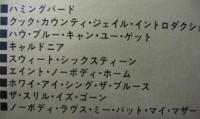 ■ハミングバード
■クック・カウンティ・ジェイル・イントロダクショ
■ハウ・ブルー・キャン・ユー・ゲット
■キャルドニア
■スウィート・シックスティーン
■エイント・ノーボディ・ホーム
■ホワイ・アイ・シング・ザ・ブルース
■ザ・スリル・イズ・ゴーン
■ノーボディ・ラヴス・ミー・バット・マイ・マザー